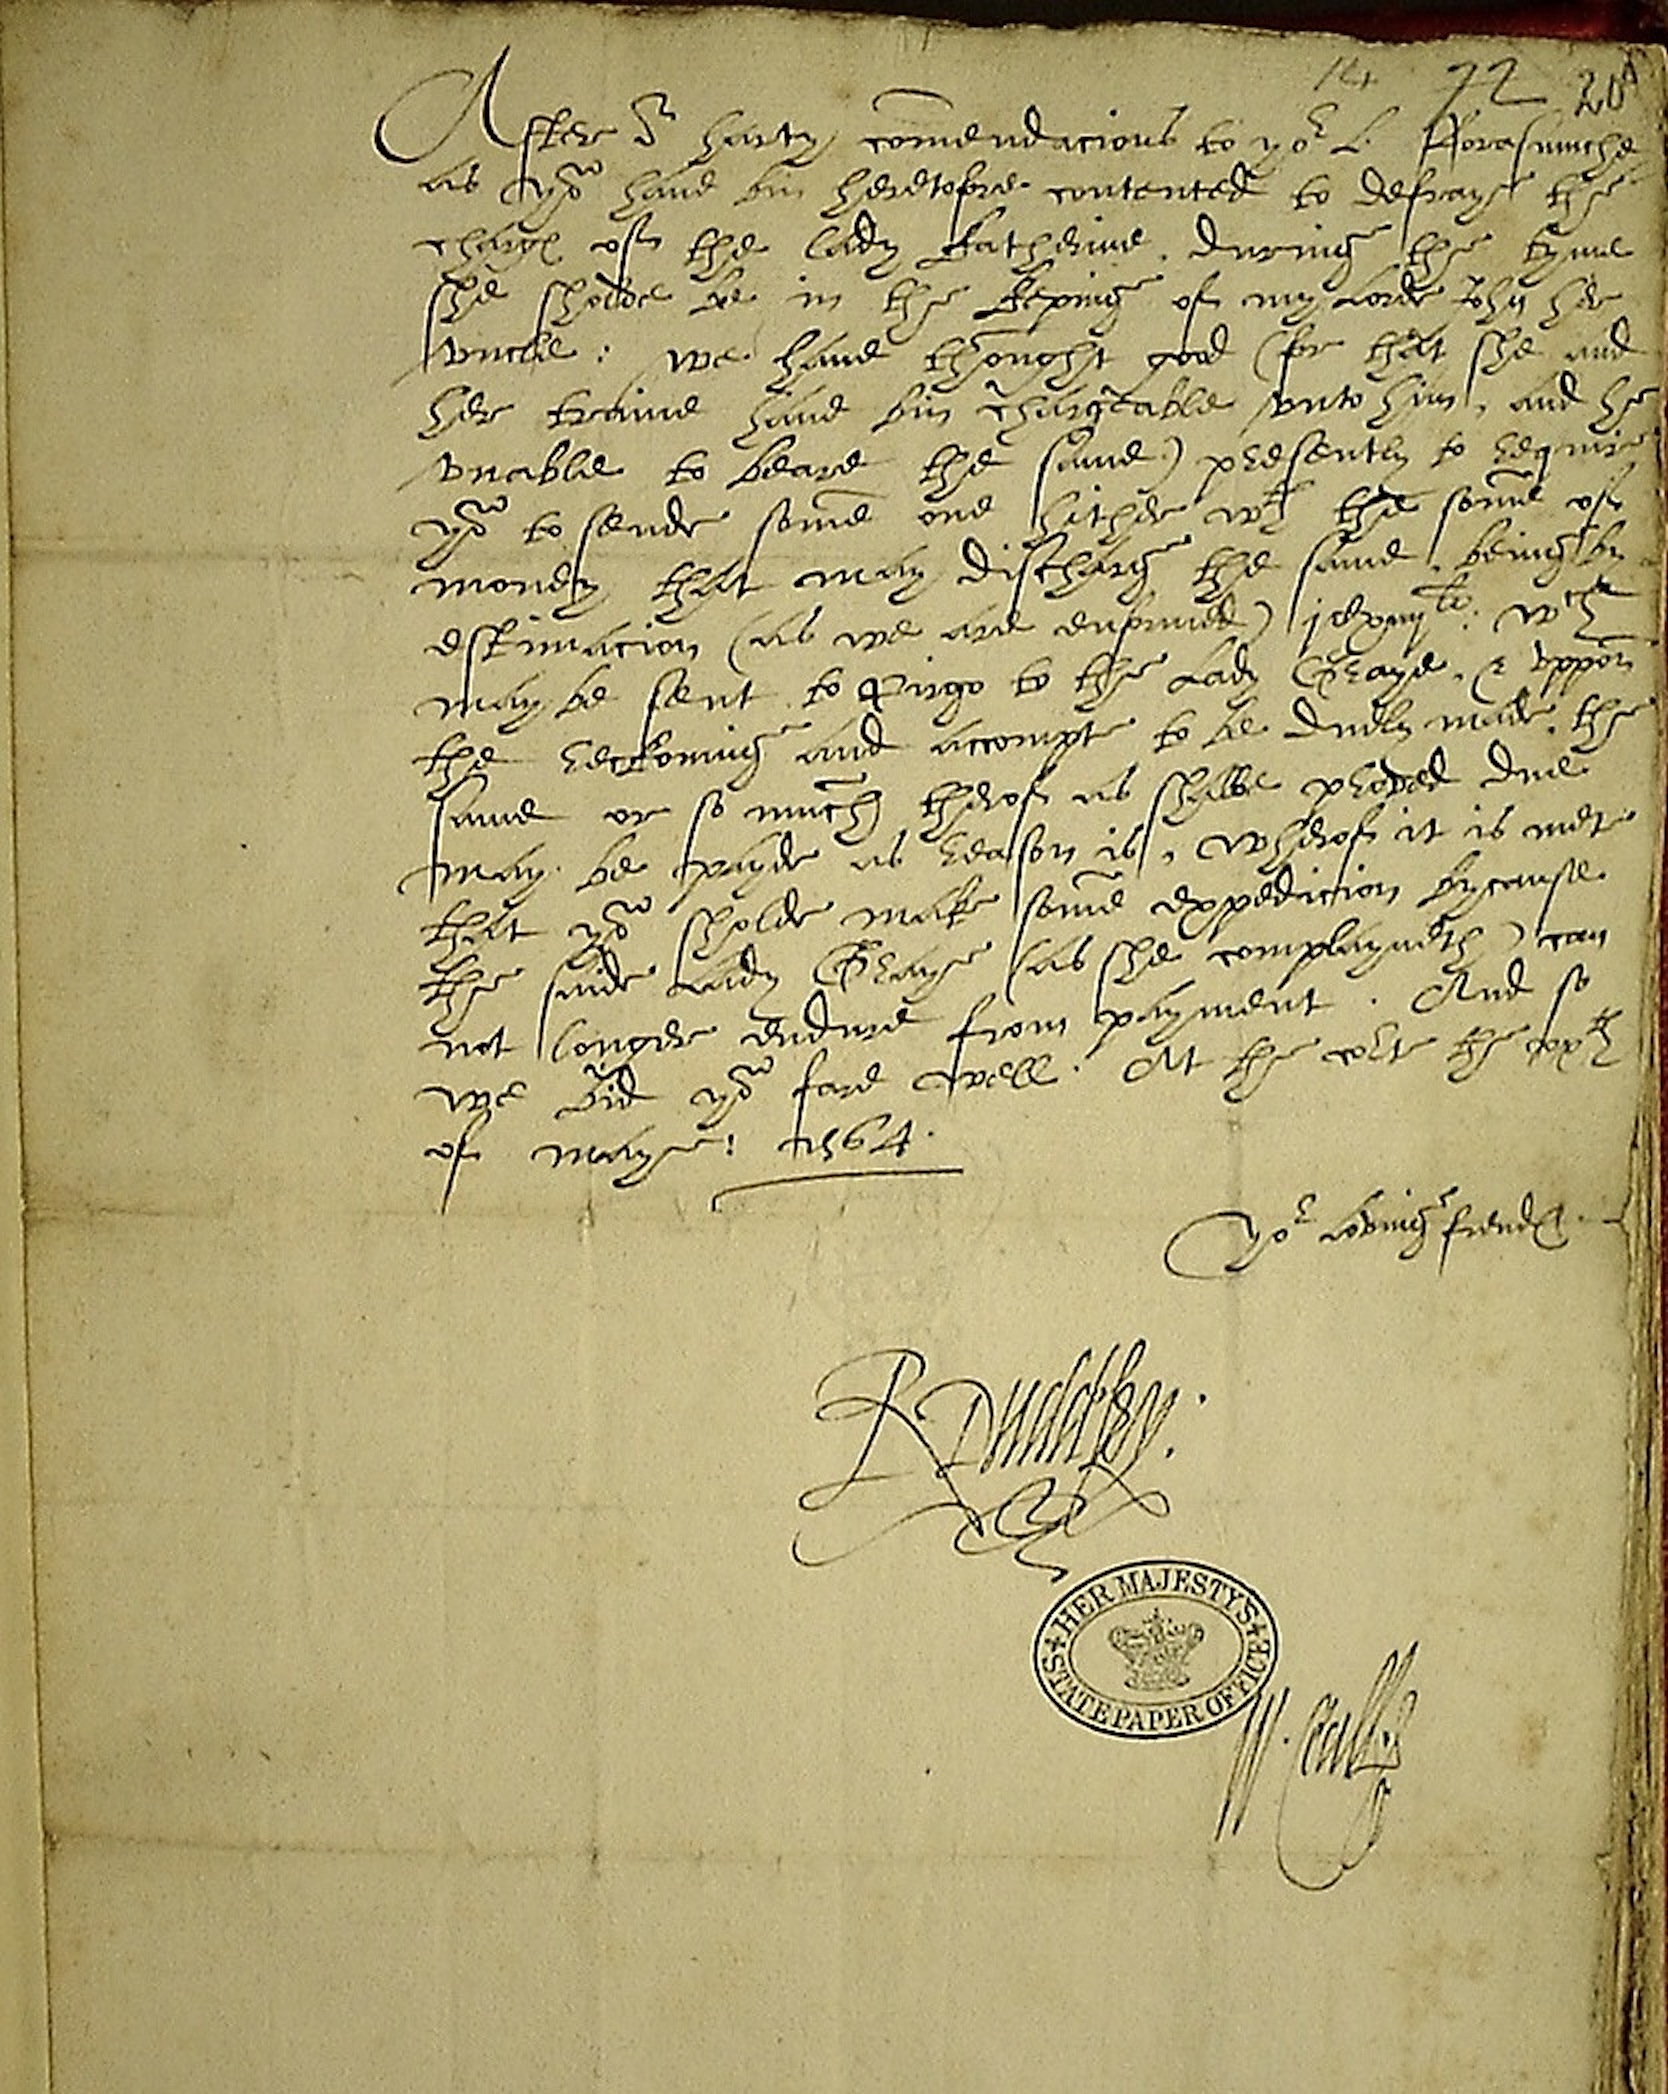 14 72 20
After or harty comendacions to yor L. Forasmuche
as you have bin heretofore contented to defraye the
charges of the Lady Katherine, during the tyme
she sholde be in the keping of my Lorde John her
vncle: we have thought good (for that she and
her traine have bin chargeable vnto him, and he
vnable to beare the same) presently to require
you to sende some one hither wth the some of
money that may discharg the same, being by
estimacion (as we are enformed) wch
may be sent to Pirgo to the Lady Graye, & vppon
the reckoning and accompte to be duely made, the
same or so much therof as shalbe proved due
may be payde as reason is, wherof it is mete
that you sholde make some expedicion bycause
the saide Lady Graye (as she complayneth) can
not longer endure from payment. And so
we bid you fare well. At the corte the
of maye: 1564.
Yor loving frendes
R Duddley
HER MAJESTY'S STATE PAPER OFFICE
W. Cecill